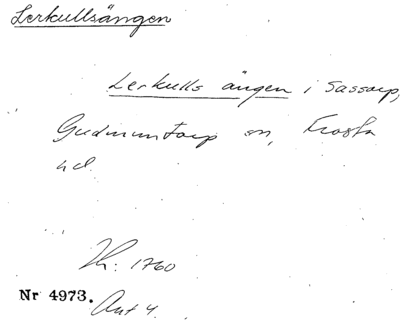 Lerkullsängen
Lerkulls ängen i Sassarp,
Gudmuntorp sn, Frosta
hd.
1760
Nr 4973.
Ant 4.